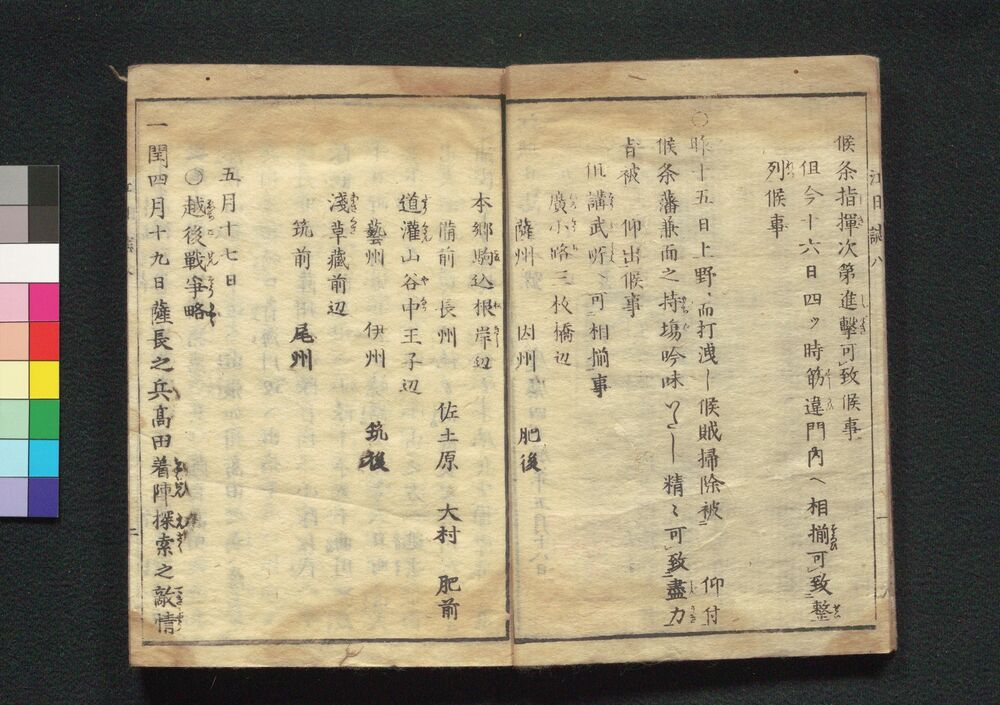 候条指揮次第進撃可致候事
但今十六日四ッ時筋違門内ヘ相揃可致整
列候事
〇昨十五日上野ニ而打洩シ候賊掃除被 仰付
候条藩兼而之持場吟味いたし精々可致盡力
旨被 仰出候事
但講武所ニ可相揃事
廣小路三枚橋辺
薩州 因州 肥後
本郷駒込根岸辺
備前 長州 佐土原 大村 肥前
道灌山谷中王子辺
藝州 伊州 筑後
淺草藏前辺
筑前 尾州
五月十七日
〇越後戦争略
一閏四月十九日薩長之兵髙田着陣探索之敵情